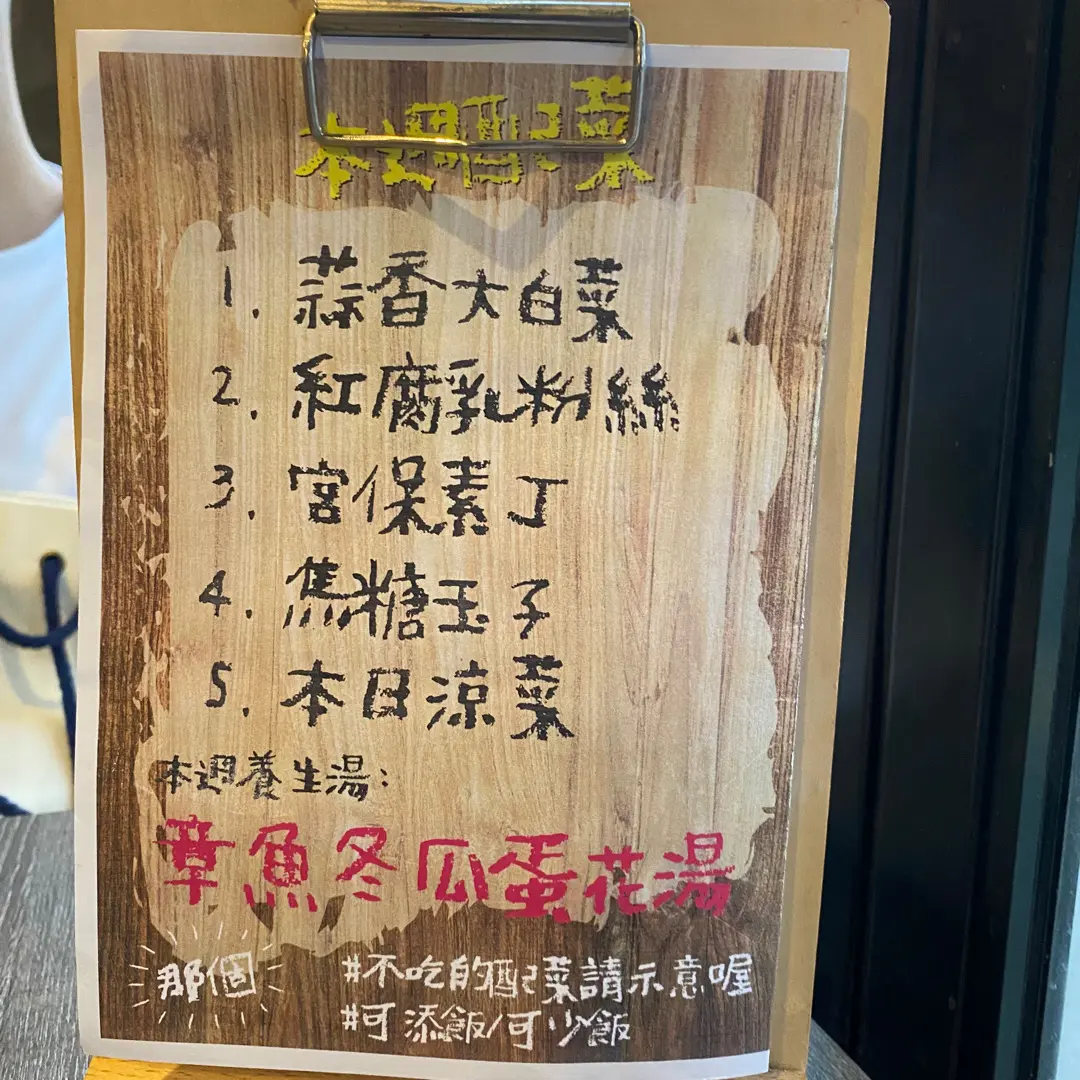 本週配菜
1. 蒜香大白菜
2. 紅腐乳粉絲
3. 宮保素丁
4. 焦糖玉子
5. 本日涼菜
本週養生湯:
章魚冬瓜蛋花湯
那個
#不吃的配菜請示意喔
#可添飯/可少飯